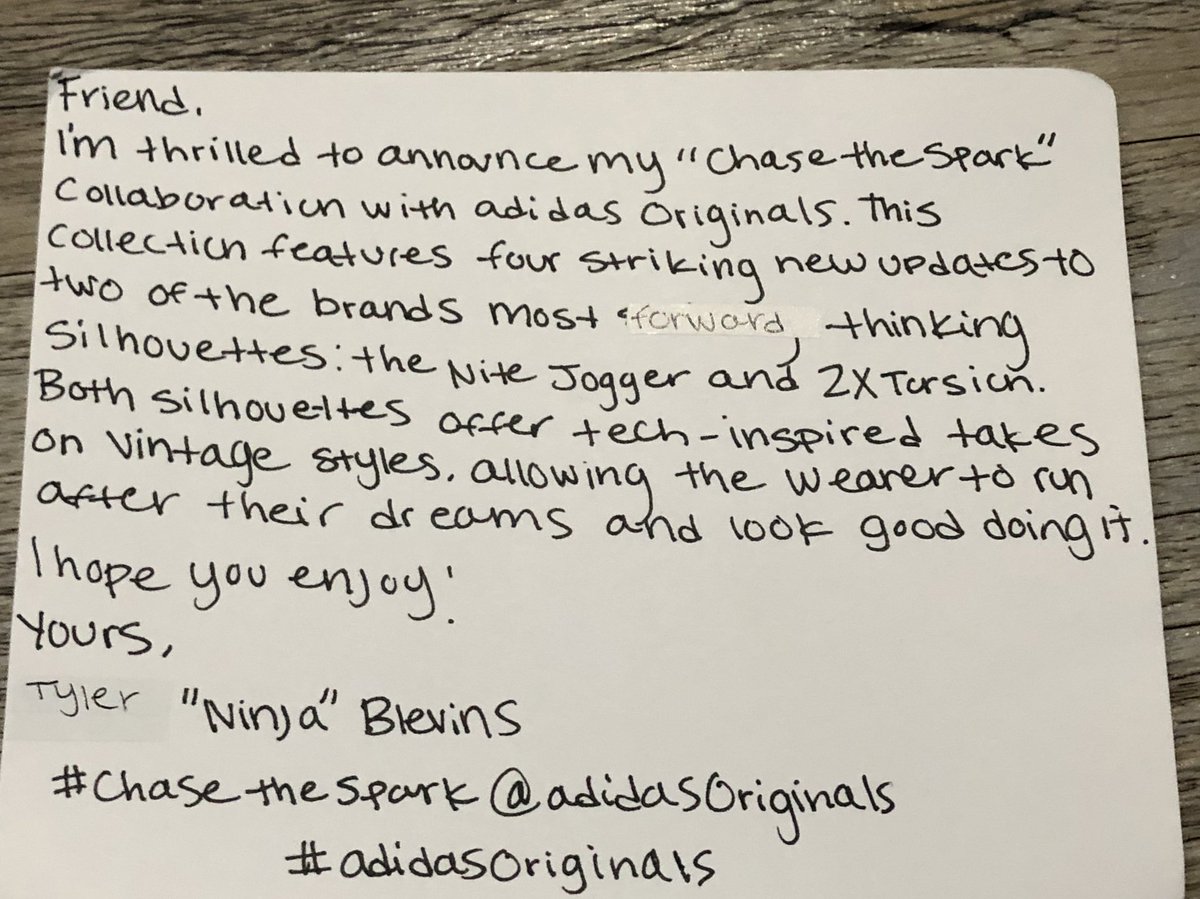 Friend,
I'm thrilled to announce my "Chase the Spark"
Collaboration with adidas Originals. This
Collection features four striking new updates to
two of the brands most forward thinking
Silhouettes: the Nite Jogger and ZX Torsion.
Both silhouettes offer tech-inspired takes
on vintage styles, allowing the wearer to run
after their dreams and look good doing it.
I hope you enjoy!
Yours,
Tyler "Ninja" Blevins
#Chase the Spark @adidasOriginals
#adidasOriginals